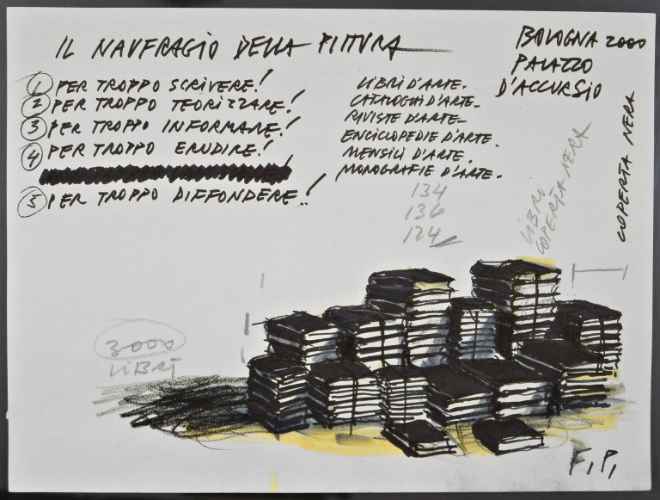 IL NAUFRAGIO DELLA PITTURA
BOLOGNA 2000
PALAZZO
D'ACCURSIO
1 PER TROPPO SCRIVERE!
2 PER TROPPO TEORIZZARE!
3 PER TROPPO INFORMARE!
4 PER TROPPO ERUDIRE!
5 PER TROPPO DIFFONDERE!!
LIBRI D'ARTE-
CATALOGHI D'ARTE-
RIVISTE D'ARTE-
ENCICLOPEDIE D'ARTE-
MENSILI D'ARTE-
MONOGRAFIE D'ARTE-
134
136
124
LIBRO
COPERTA NERA
COPERTA NERA
3000
LIBRI
F.P.